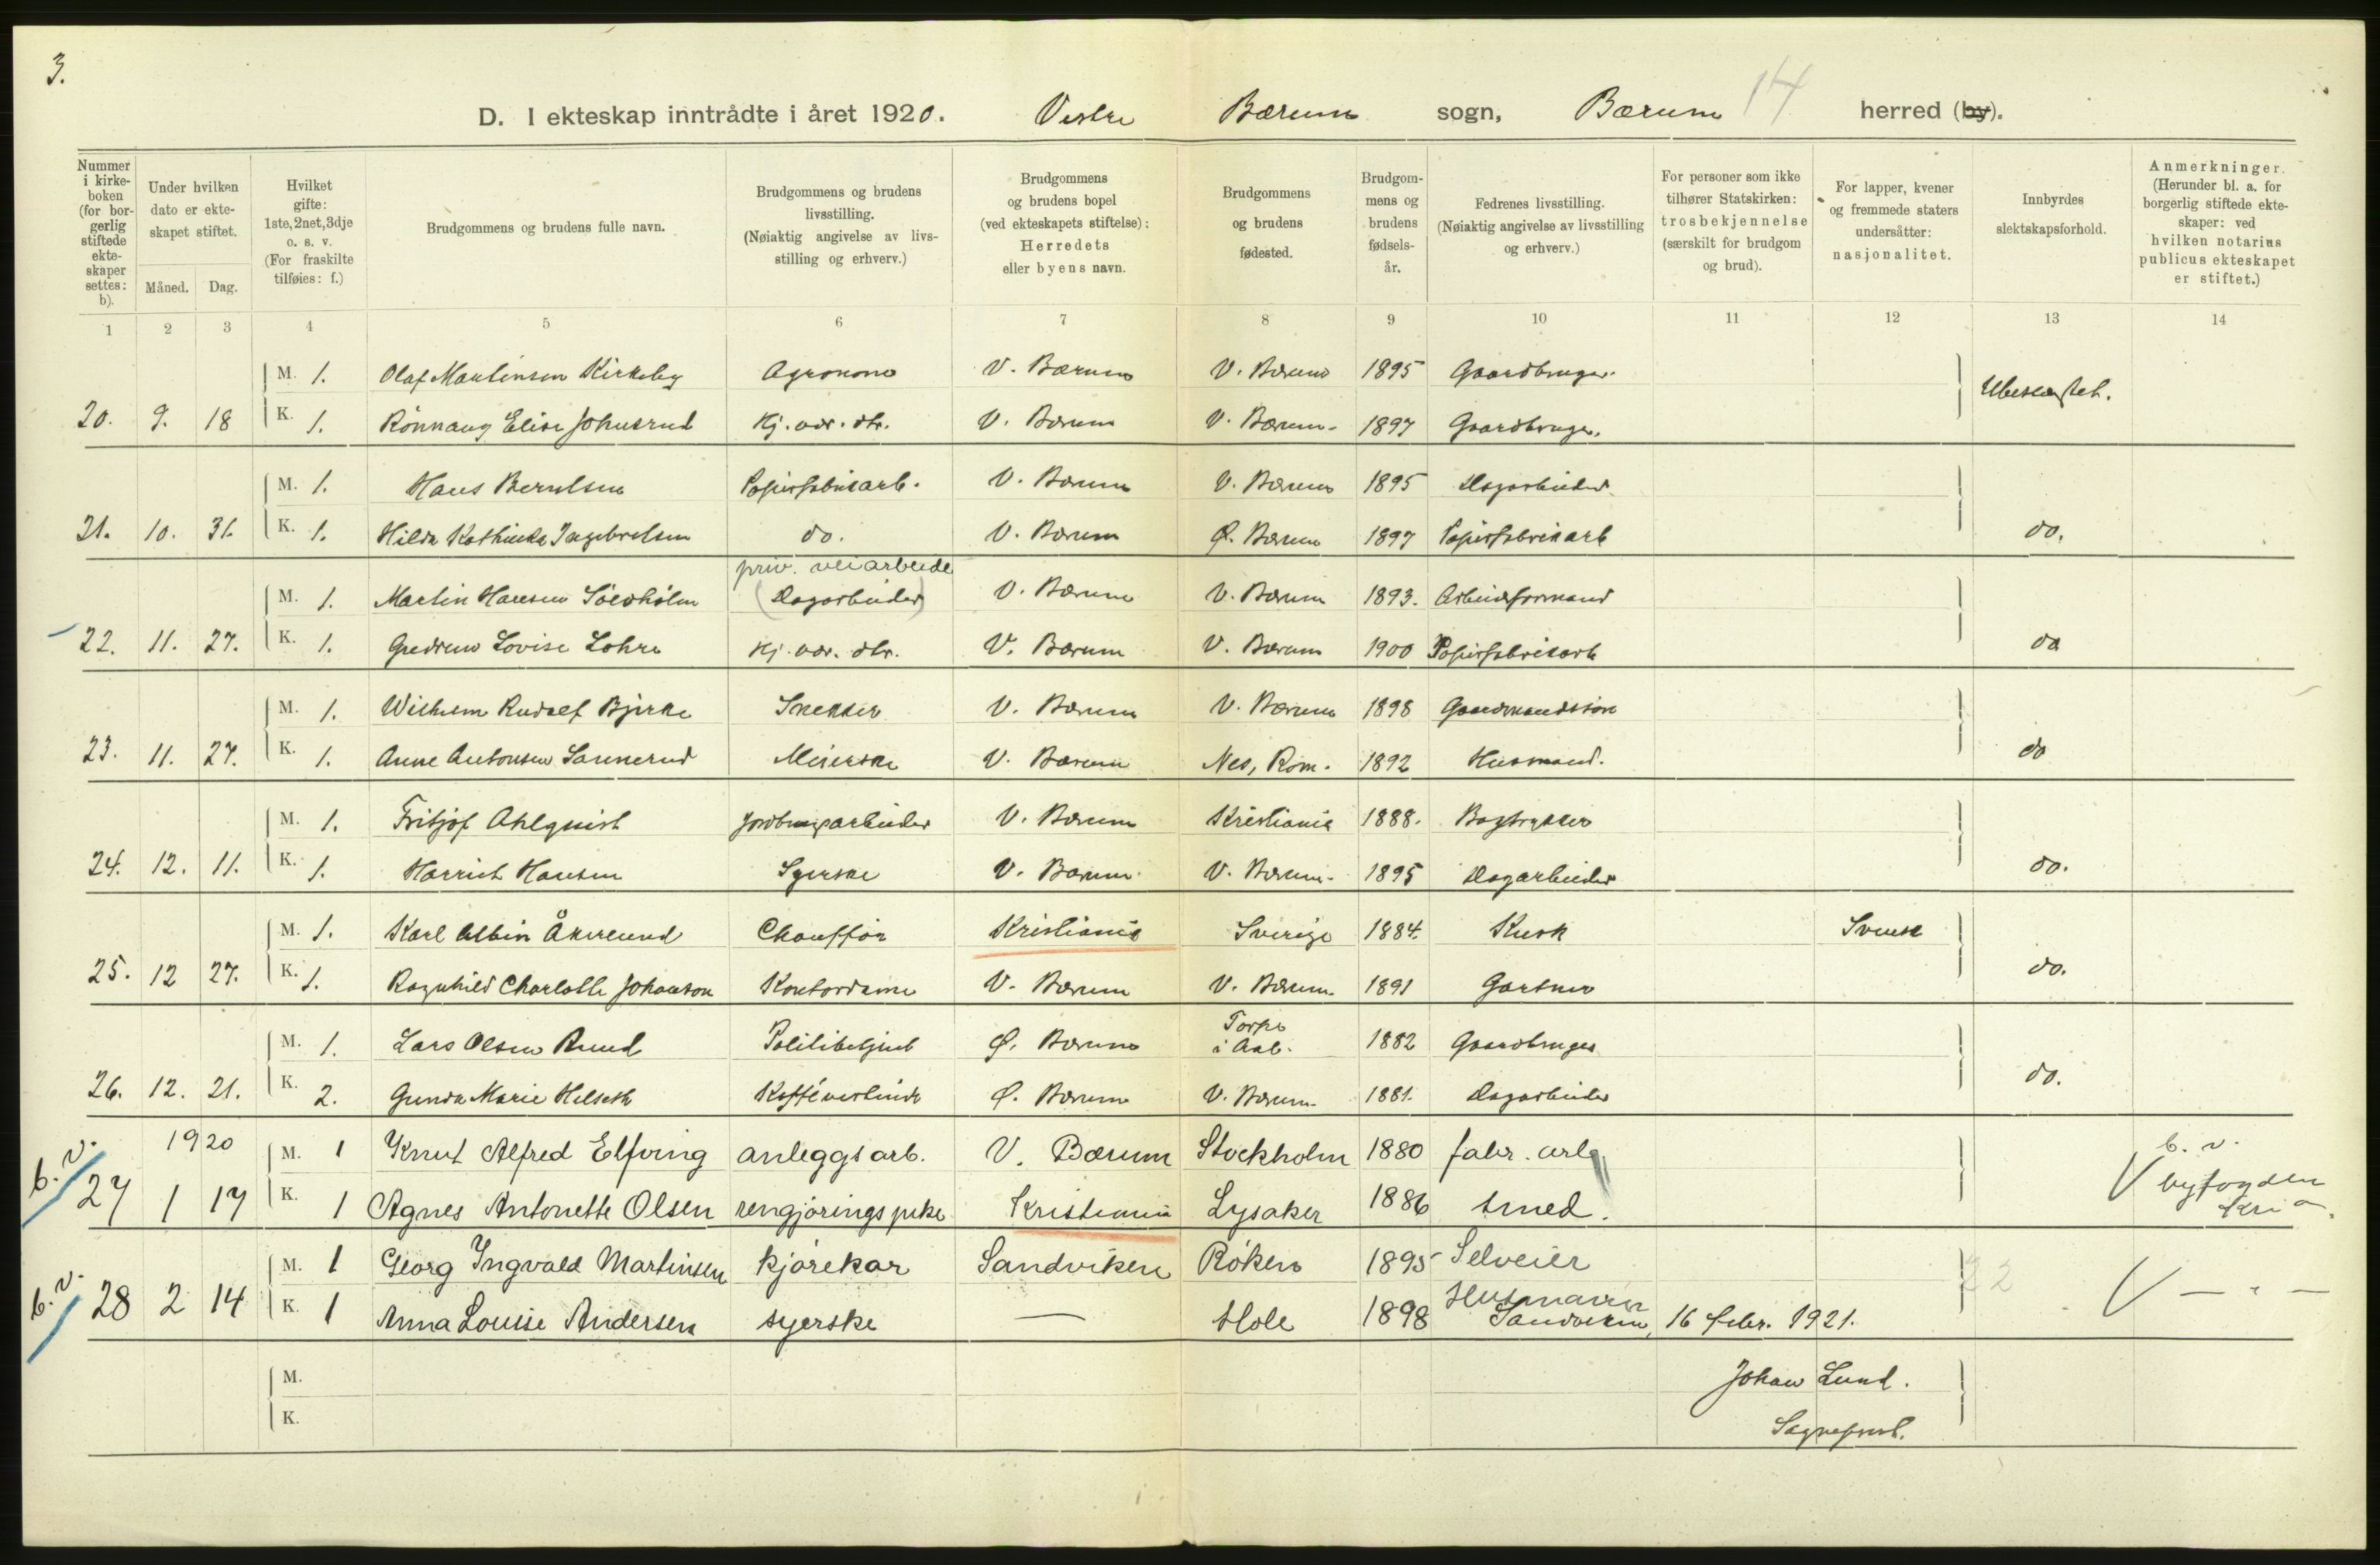 3.
D. I ekteskap inntrådte i året 1920. Vestre Bærum sogn, Bærum 14 herred (by).
Nummer i kirke-boken (for bor-gerlig stiftede ekte-skaper settes: b).
Under hvilken dato er ekte-skapet stiftet.
Måned. Dag.
Hvilket gifte: 1ste, 2net, 3dje o. s. v. (For fraskilte tilføies: f.)
Brudgommens og brudens fulle navn.
Brudgommens og brudens livsstilling. (Nøiaktig angivelse av livs-stilling og erhverv.)
Brudgommens og brudens bopel (ved ekteskapets stiftelse): Herredets eller byens navn.
Brudgommens og brudens fødested.
Brudgom-mens og brudens fødsels-år.
Fedrenes livsstilling. (Nøiaktig angivelse av livsstilling og erhverv.)
For personer som ikke tilhører Statskirken: trosbekjennelse (særskilt for brudgom og brud).
For lapper, kvener og fremmede staters undersåtter: nasjonalitet.
Innbyrdes slektskapsforhold.
Anmerkninger. (Herunder bl. a. for borgerlig stiftede ekte-skaper: ved hvilken notarius publicus ekteskapet er stiftet.)
1 2 3 4 5 6 7 8 9 10 11 12 13 14
M. 1. Olaf Martinsen Kirkeby Agronom V. Bærum V. Bærum 1895 Gaardbruger.
Ubeslægtet.
20. 9. 18 K. 1. Rönnaug Elise Johnsrud Kj. vær. dtr. V. Bærum V. Bærum. 1897 Gaardbruger.
M. 1. Hans Berntsen Papirfabrikarb. V. Bærum V. Bærum 1895 Dagarbeider.
21. 10. 31. K. 1. Hilda Kathinka Ingebretsen do. V. Bærum Ø. Bærum 1897 Papirfabrikarb do.
priv. veiarbeide
M. 1. Martin Hansen (Dagarbeider) V. Bærum V. Bærum 1893. Arbeidsformand
22. 11. 27. K. 1. Gudrun Lovise Lohre Kj. vær. dtr. V. Bærum V. Bærum 1900 Papirfabrikarb do
M. 1. Wilhelm Rudolf Bjerke Snekker V. Bærum V. Bærum 1898 Gaardmandssön
23. 11. 27. K. 1. Anne Antonsen Sannerud Meierske V. Bærum Nes, Rom. 1892 Husmand. do
M. 1. Fritjof Ahlquist Jordbrugsarbeider V. Bærum Kristiania 1888. Bogtrykker
24. 12. 11. K. 1. Harriet Hansen Syerske V. Bærum V. Bærum. 1895 Dagarbeider do.
M. 1. Karl Albin Åkerlund Chaufför Kristiania Sverige 1884. Kusk Svensk
25. 12 27. K. 1. Ragnhild Charlotte Johanson Kontordame V. Bærum V. Bærum 1891 Gartner do.
M. 1. Lars Olsen Ruud Politibetjent Ø. Bærum Torpo i Aal. 1882 Gaardbruger
26. 12. 21. K. 2. Gunda Marie Helseth Kaffévertinde Ø. Bærum V. Bærum. 1881. Dagarbeider do.
b. v. 1920 M. 1 Knut Alfred Elfving anleggsarb. V. Bærum Stockholm 1880 fabr. arb b. v.
27 1 17 K. 1 Agnes Antonette Olsen rengjöringspike Kristiania Lysaker 1886 smed. byfogden Kria.
b. v. M. 1 Georg Ingvald Martinsen kjörekar Sandviken Röken 1895 Selveier
28 2 14 K. 1 Anna Louise Andersen syerske — Hole 1898 Husmann 22 — " —
Sandviken, 16 febr. 1921.
M. Johan Lund.
K. Sogneprest.